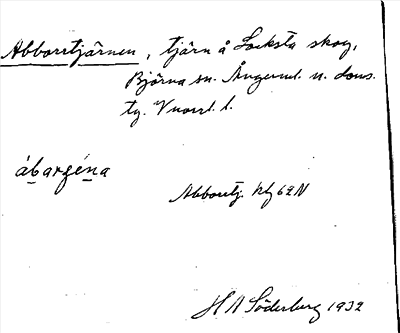 Abborrtjärnen, tjärn å Locksta skog,
Björna sn. Ångerml. n. doms.
tg. Vnorrl. l.
ábarȼéna
Abborrtj. Kbl 62N
H A Söderberg 1932